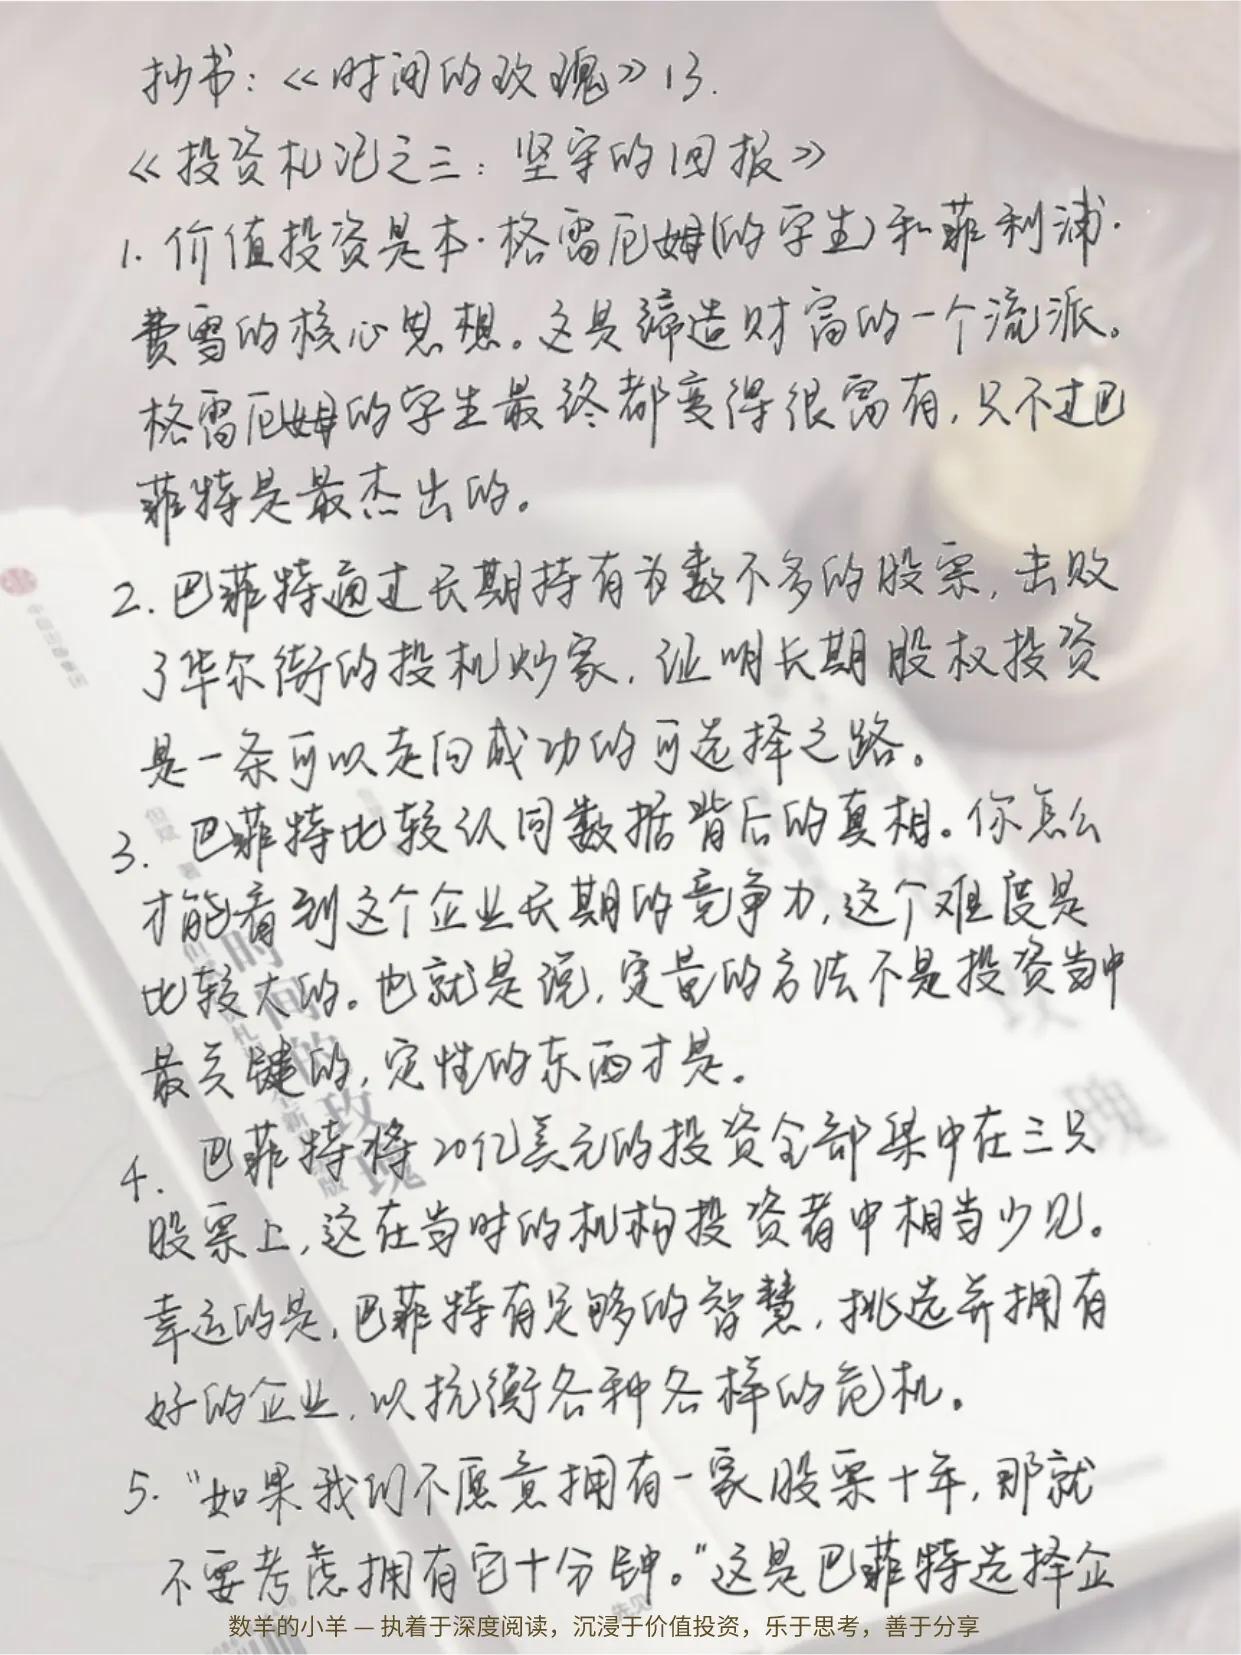 抄书：《时间的玫瑰》13.
《投资札记之三：坚守的回报》
1. 价值投资是本·格雷厄姆(的学生)和菲利浦·
费雪的核心思想。这是缔造财富的一个流派。
格雷厄姆的学生最终都变得很富有，只不过巴
菲特是最杰出的。
2. 巴菲特通过长期持有为数不多的股票，击败
了华尔街的投机炒家，证明长期股权投资
是一条可以走向成功的可选择之路。
3. 巴菲特比较认同数据背后的真相。你怎么
才能看到这个企业长期的竞争力，这个难度是
比较大的。也就是说，定量的方法不是投资当中
最关键的，定性的东西才是。
4. 巴菲特将20亿美元的投资全部集中在三只
股票上，这在当时的机构投资者中相当少见。
幸运的是，巴菲特有足够的智慧，挑选并拥有
好的企业，以抗衡各种各样的危机。
5. “如果我们不愿意拥有一家股票十年，那就
不要考虑拥有它十分钟。”这是巴菲特选择企
数羊的小羊 — 执着于深度阅读，沉浸于价值投资，乐于思考，善于分享
时间的玫瑰
但斌 著
玫
瑰